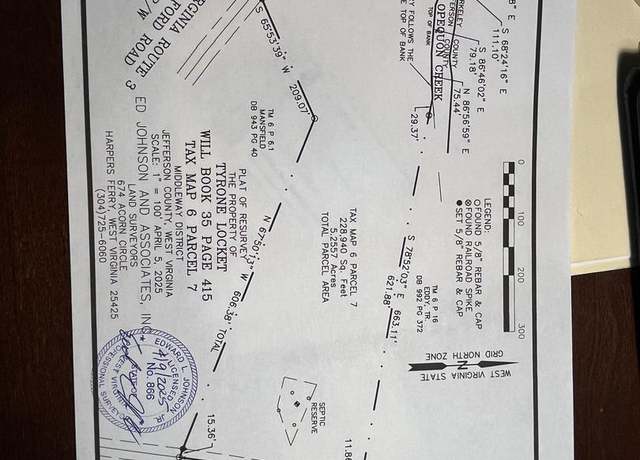 BERKELEY COUNTY
JEFFERSON COUNTY
OPEQUON CREEK
TOP OF BANK
Y FOLLOWS THE
E TOP OF BANK
8" E
S 68°24'16" E
111.10'
S 86°46'02" E
79.18'
N 86°56'59" E
75.44'
29.37'
0 100 200 300
LEGEND:
○ FOUND 5/8" REBAR & CAP
⊗ FOUND RAILROAD SPIKE
● SET 5/8" REBAR & CAP
WEST VIRGINIA STATE
GRID NORTH ZONE
N
S 78°52'03" E 663.11'
621.88'
TM 6 P 16
EDDY, TR
DB 992 PG 372
11.86
TAX MAP 6 PARCEL 7
228,940 Sq. Feet
5.2557 Acres
TOTAL PARCEL AREA
SEPTIC
RESERVE
S 65°53'39" W 209.07'
TM 6 P 6.1
MANSFIELD
DB 943 PG 40
N 67°50'15" W 606.38' TOTAL
15.36'
VIRGINIA ROUTE 3
FORD ROAD
R/W
PLAT OF RESURVEY
THE PROPERTY OF
TYRONE LOCKET
WILL BOOK 35 PAGE 415
TAX MAP 6 PARCEL 7
MIDDLEWAY DISTRICT
JEFFERSON COUNTY, WEST VIRGINIA
SCALE: 1" = 100' APRIL 5, 2025
ED JOHNSON AND ASSOCIATES, INC
LAND SURVEYORS
674 ACORN CIRCLE
HARPERS FERRY, WEST VIRGINIA 25425
(304)725-6060
EDWARD L. JOHNSON JR
LICENSED
4/9/2025
No. 866
WEST VIRGINIA
PROFESSIONAL SURVEYOR